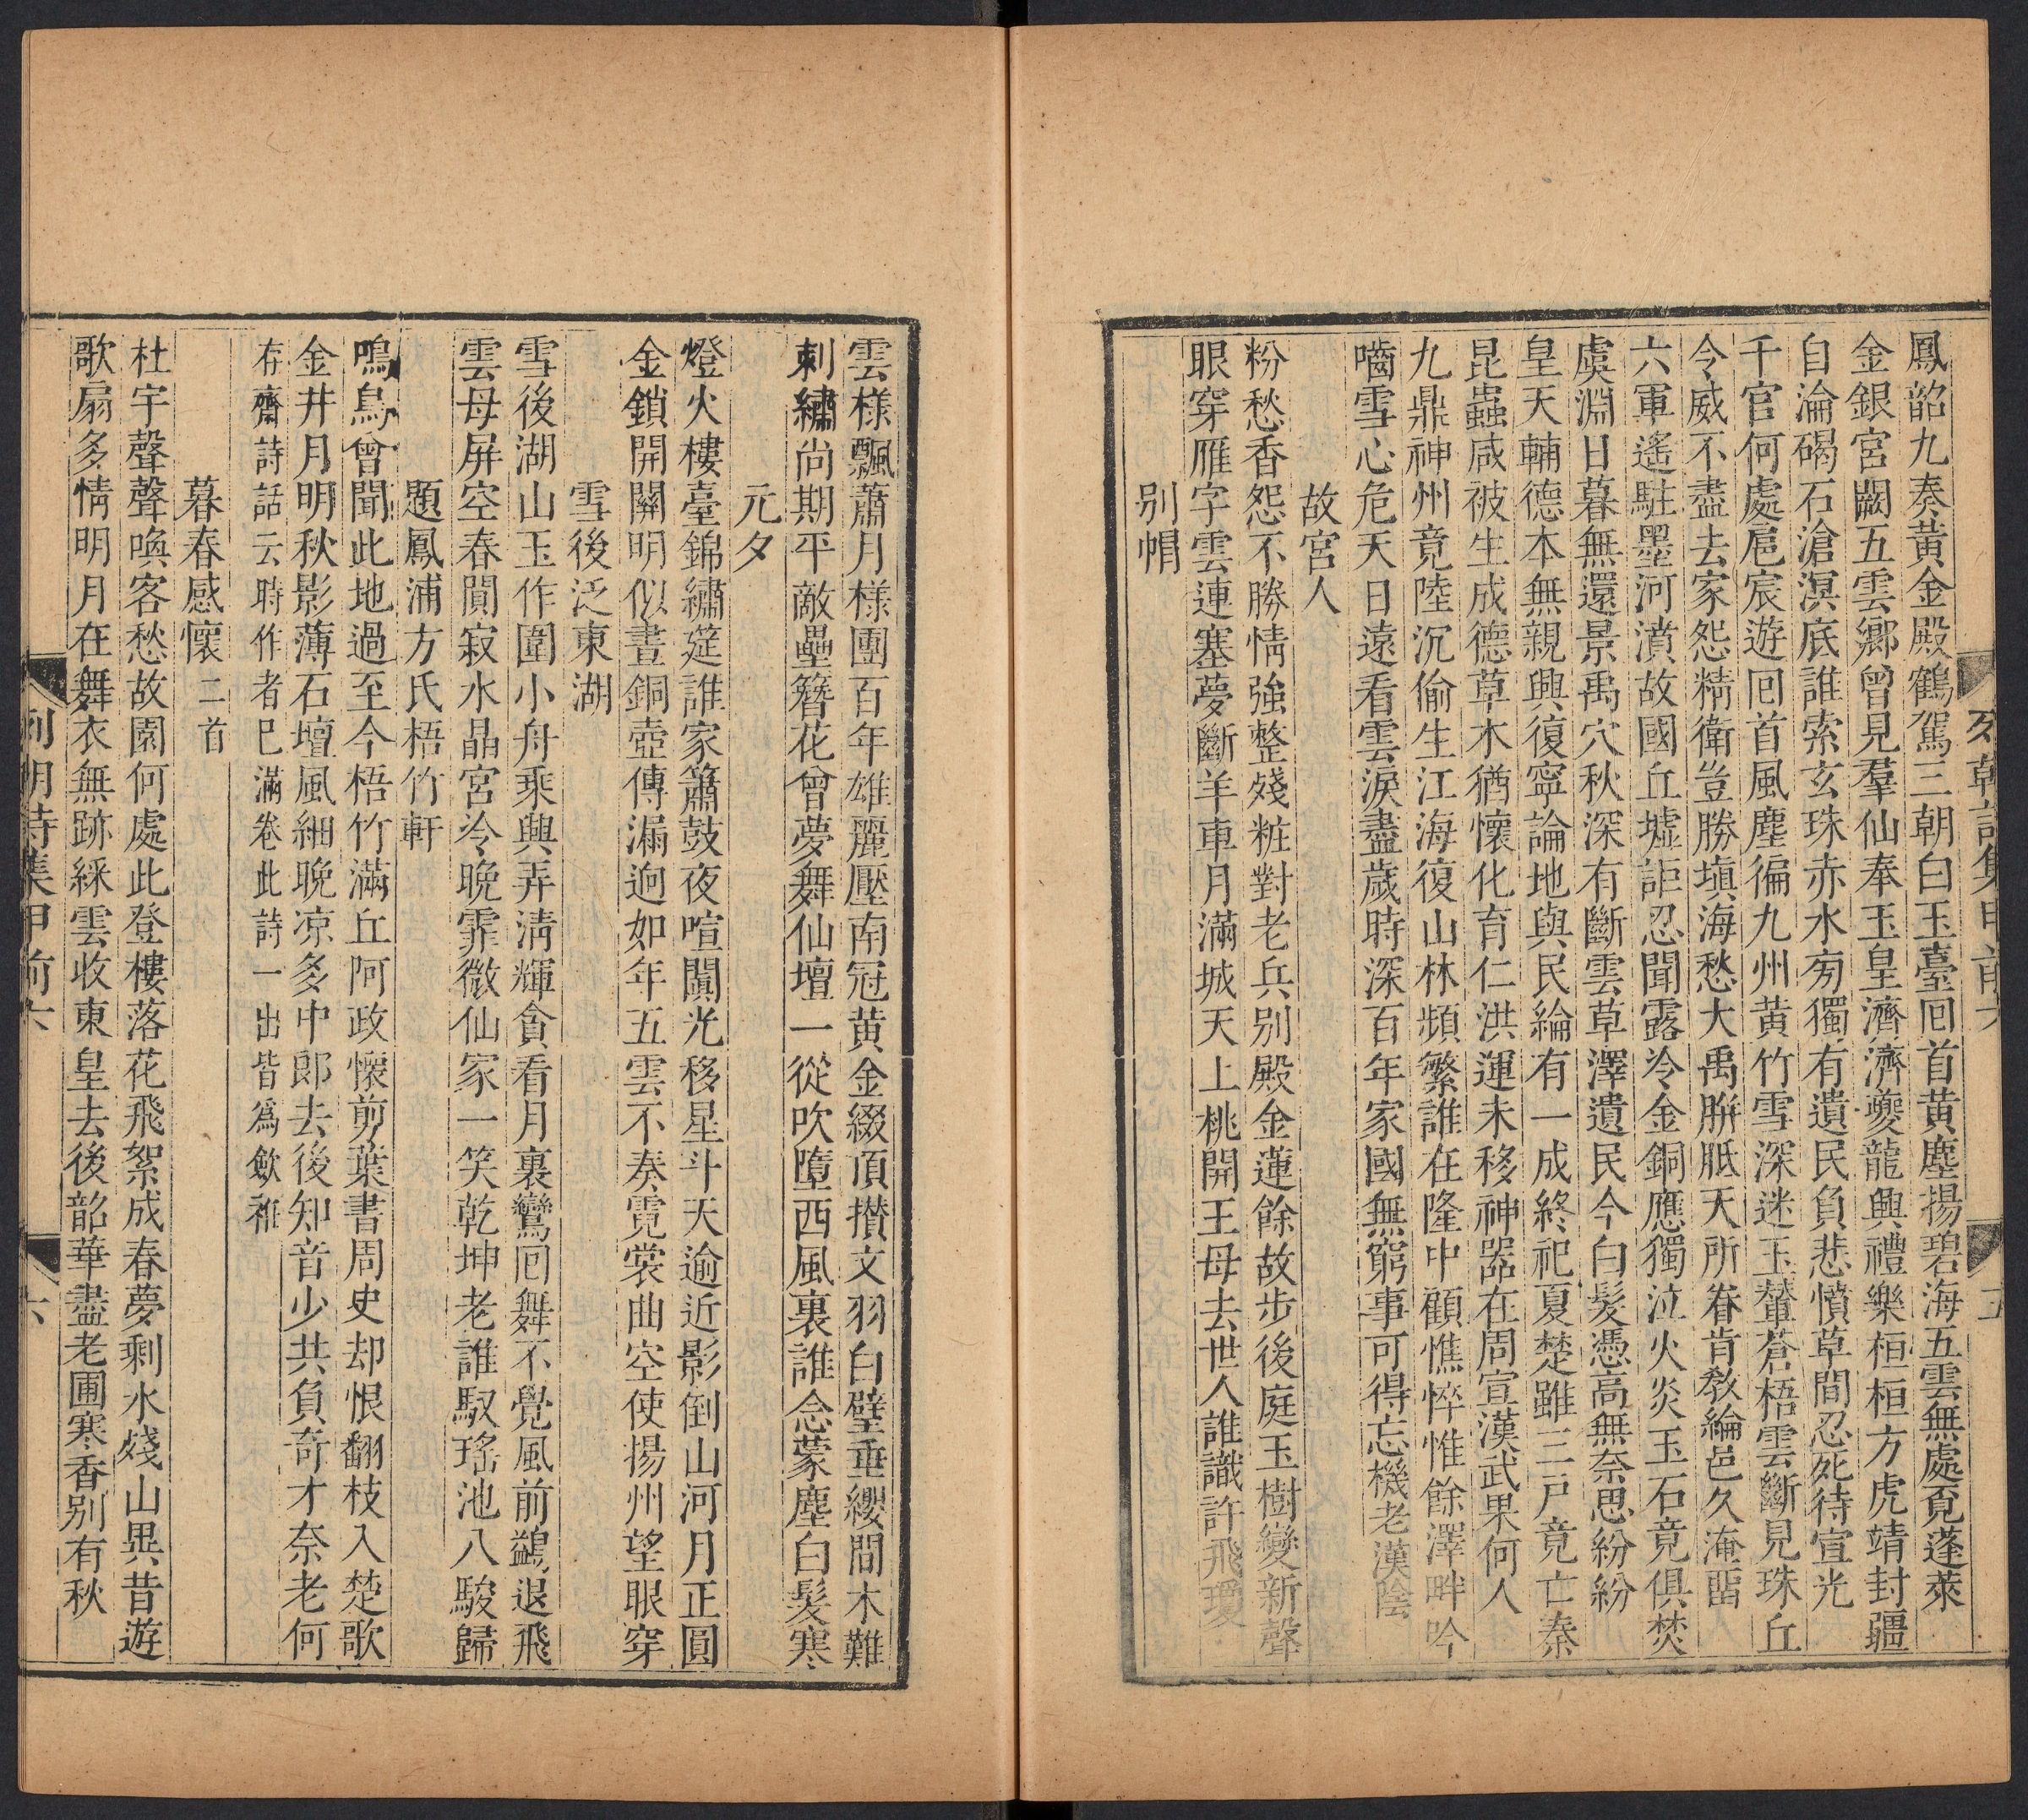 鳳韶九奏黃金殿鶴駕三朝白玉臺囘首黃塵揚碧海五雲無處覔蓬萊
金銀宮闕五雲鄉曾見羣仙奉玉皇濟濟夔龍興禮樂桓桓方虎靖封疆
自淪碣石滄溟底誰索玄珠赤水㫄獨有遺民負悲憤草間忍死待宣光
千官何處扈宸遊囘首風塵徧九州黃竹雪深迷玉輦蒼梧雲斷見珠丘
令威不盡去家怨精衛豈勝塡海愁大禹胼胝天所眷肯敎綸邑久淹畱
六軍遙駐墨河濆故國丘墟詎忍聞露冷金銅應獨泣火炎玉石竟俱焚
虞淵日暮無還景禹穴秋深有斷雲草澤遺民今白髮憑高無奈思紛紛
皇天輔德本無親興復寧論地與民綸有一成終祀夏楚雖三戸竟亡秦
昆蟲咸被生成德草木猶懷化育仁洪運未移神器在周宣漢武果何人
九鼎神州竟陸沉偷生江海復山林頻繁誰在隆中顧憔悴惟餘澤畔吟
嚙雪心危天日遠看雲淚盡歲時深百年家國無窮事可得忘機老漢陰
故宮人
粉愁香怨不勝情強整殘粧對老兵別殿金蓮餘故步後庭玉樹變新聲
眼穿雁字雲連塞夢斷羊車月滿城天上桃開王母去世人誰識許飛瓊
別帽
雲樣飄蕭月樣團百年雄麗壓南冠黃金綴頂攢文羽白璧垂纓間木難
刺繡尚期平敵壘簪花曾夢舞仙壇一從吹墮西風裏誰念蒙塵白髮寒
元夕
燈火樓臺錦繡筵誰家簫鼓夜喧闐光移星斗天逾近影倒山河月正圓
金鎖開關明似晝銅壺傳漏逈如年五雲不奏霓裳曲空使揚州望眼穿
雪後泛東湖
雪後湖山玉作圍小舟乘興弄淸輝貪看月裏鸞囘舞不覺風前鷁退飛
雲母屏空春闃寂水晶宮冷晚霏微仙家一笑乾坤老誰馭瑤池八駿歸
題鳳浦方氏梧竹軒
鳴鳥曾聞此地過至今梧竹滿丘阿政懷剪葉書周史却恨翻枝入楚歌
金井月明秋影薄石壇風細晚凉多中郎去後知音少共負奇才奈老何
存齋詩話云時作者已滿卷此詩一出皆爲斂袵
暮春感懷二首
杜宇聲聲喚客愁故園何處此登樓落花飛絮成春夢剩水殘山異昔遊
歌扇多情明月在舞衣無跡綵雲收東皇去後韶華盡老圃寒香別有秋
列朝詩集甲前六
六